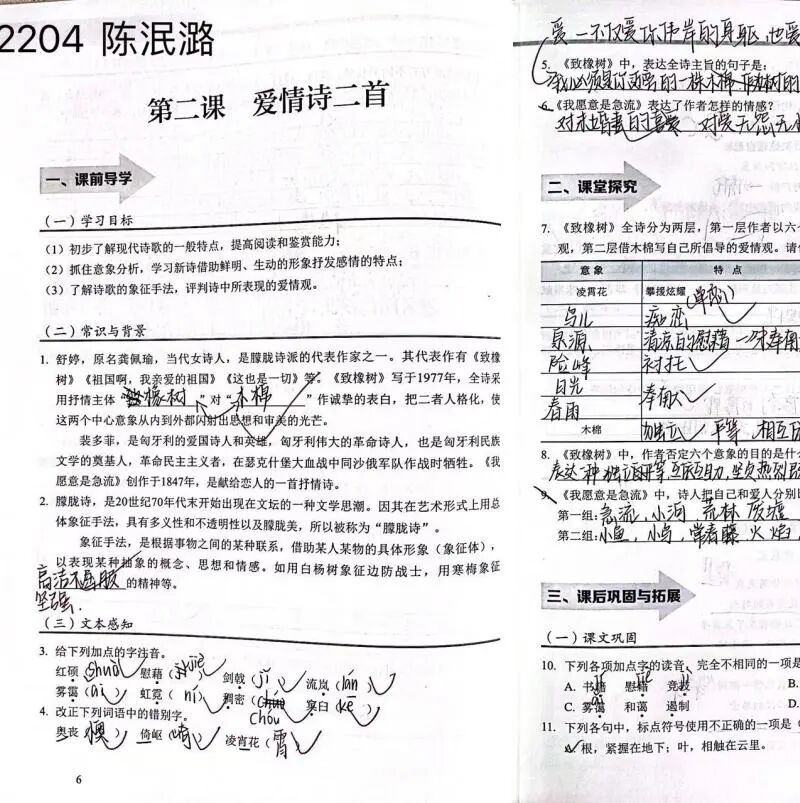 2204 陈泯潞
第二课 爱情诗二首
一、课前导学
（一）学习目标
（1）初步了解现代诗歌的一般特点，提高阅读和鉴赏能力；
（2）抓住意象分析，学习新诗借助鲜明、生动的形象抒发感情的特点；
（3）了解诗歌的象征手法，评判诗中所表现的爱情观。
（二）常识与背景
1. 舒婷，原名龚佩瑜，当代女诗人，是朦胧诗派的代表作家之一。其代表作有《致橡
树》《祖国啊，我亲爱的祖国》《这也是一切》等。《致橡树》写于1977年，全诗采
用抒情主体“ 橡树 ”对“ 木棉 ”作诚挚的表白，把二者人格化，使
这两个中心意象从内到外都闪射出思想和审美的光芒。
裴多菲，是匈牙利的爱国诗人和英雄，匈牙利伟大的革命诗人，也是匈牙利民族
文学的奠基人，革命民主主义者，在瑟克什堡大血战中同沙俄军队作战时牺牲。《我
愿意是急流》创作于1847年，是献给恋人的一首抒情诗。
2. 朦胧诗，是20世纪70年代末开始出现在文坛的一种文学思潮。因其在艺术形式上用总
体象征手法，具有多义性和不透明性以及朦胧美，所以被称为“朦胧诗”。
象征手法，是根据事物之间的某种联系，借助某人某物的具体形象（象征体），
以表现某种抽象的概念、思想和情感。如用白杨树象征边防战士，用寒梅象征
高洁不屈服 的精神等。
坚强.
（三）文本感知
3. 给下列加点的字注音。
红硕（shuò） 慰藉（jiè） 剑戟（jǐ） 流岚（lán）
雾霭（ǎi） 虹霓（ní） 稠密（chóu） 窠臼（kē）
4. 改正下列词语中的错别字。
奥丧（懊） 倚岖（崎） 凌宵花（霄）
6
爱—不仅爱你伟岸的身躯，也爱
5. 《致橡树》中，表达全诗主旨的句子是：
我必须是你近旁的一株木棉
6. 《我愿意是急流》表达了作者怎样的情感？
二、课堂探究
7. 《致橡树》全诗分为两层，第一层作者以六个
观，第二层借木棉写自己所倡导的爱情观。请
意象 特点
凌霄花 攀援炫耀
鸟儿 痴恋
泉源 清凉的慰藉
险峰 衬托
日光 奉献
春雨
木棉 独立 平等
8. 《致橡树》中，作者否定六个意象的目的是什
9. 《我愿意是急流》中，诗人把自己和爱人分别
第一组：急流，小河 荒林 废墟
第二组：小鱼，小鸟，常春藤 火焰
三、课后巩固与拓展
（一）课文巩固
10. 下列各项加点字的读音，完全不相同的一项是
A. 书籍 慰藉 竞技 B.
C. 雾霭 和蔼 遏制 D.
11. 下列各句中，标点符号使用不正确的一项是（
根，紧握在地下；叶，相触在云里。